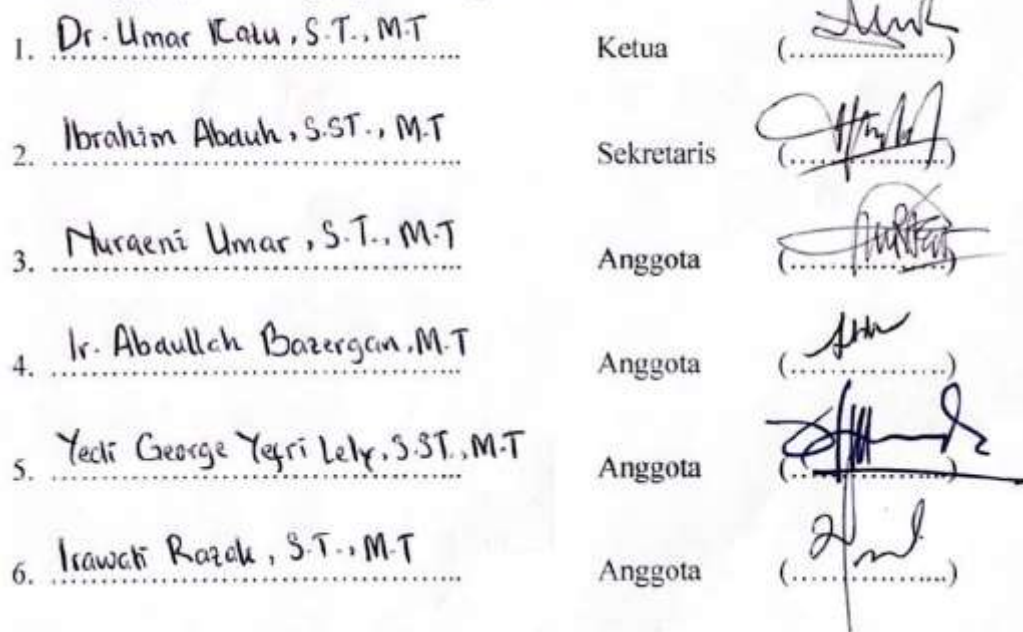 1. Dr. Umar Katu, S.T., M.T Ketua (................)
2. Ibrahim Abduh, S.ST., M.T Sekretaris (................)
3. Nuraeni Umar, S.T., M.T Anggota (................)
4. Ir. Abdullah Bazergan, M.T Anggota (................)
5. Yedi George Yefri Lely, S.ST., M.T Anggota (................)
6. Irawati Razak, S.T., M.T Anggota (................)